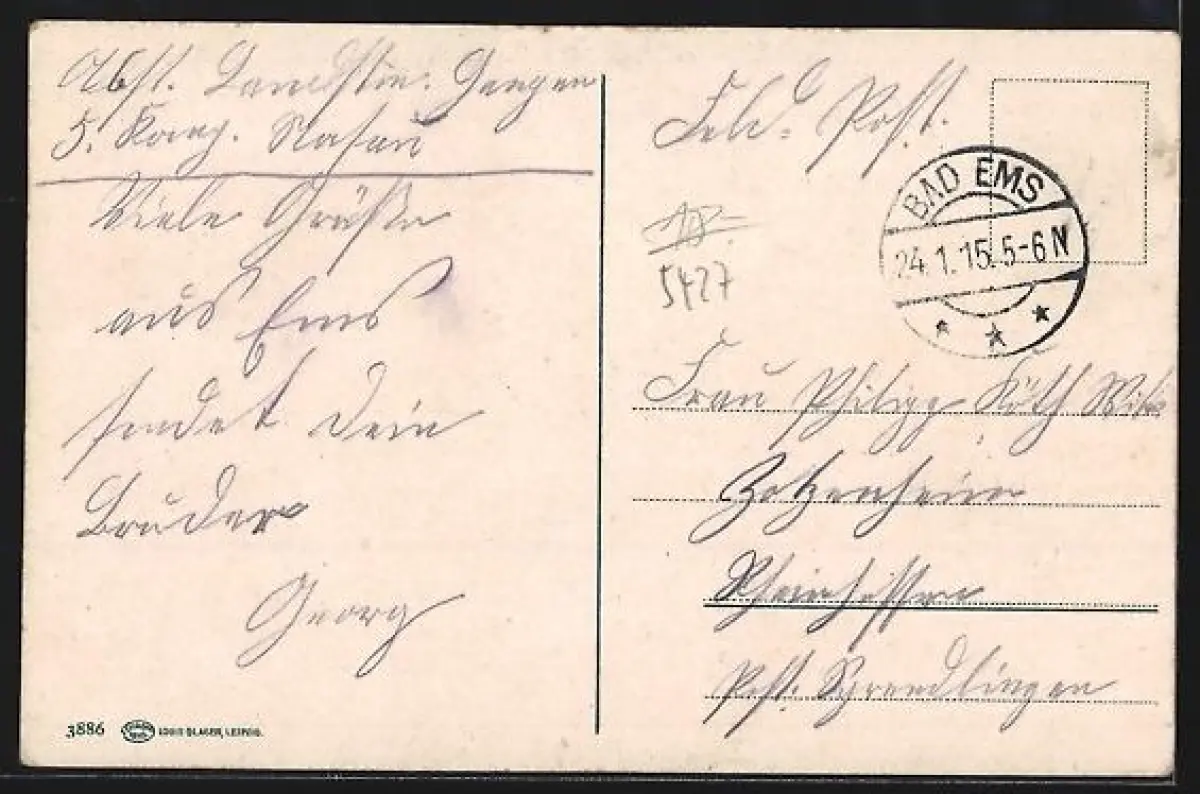 Abst. Landstm. Gengen
5. Komp. Nassau
Viele Grüße
aus Ems
sendet Dein
Bruder
Georg
3886 LOUIS GLASER, LEIPZIG.
Feld-Post.
BAD EMS
24.1.15. 5-6 N
5427
Frau Philipp Köth Witw
Zotzenheim
Rheinhessen
Post. Sprendlingen